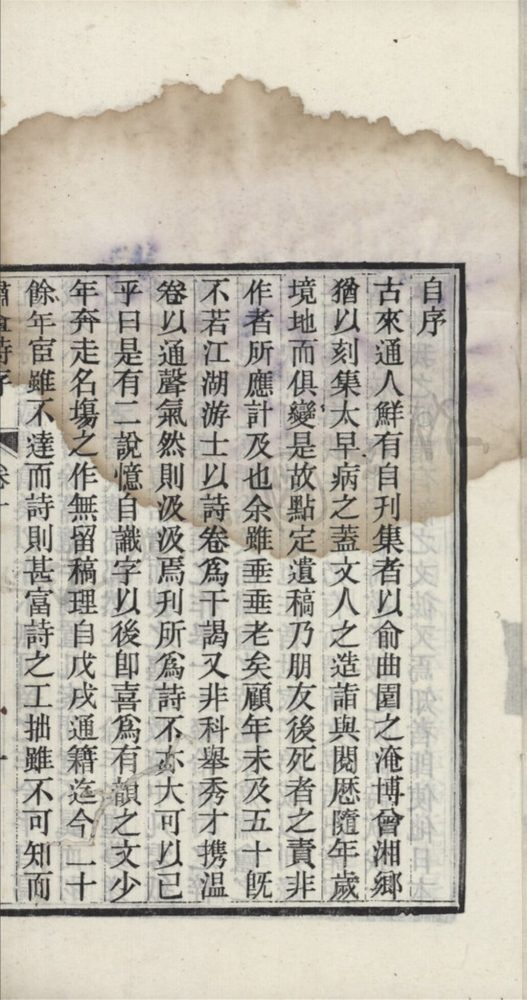 自序
古來通人鮮有自刊集者以俞曲園之淹博曾湘鄉
猶以刻集太早病之蓋文人之造詣與閱歷隨年歲
境地而俱變是故點定遺稿乃朋友後死者之責非
作者所應計及也余雖垂垂老矣顧年未及五十既
不若江湖游士以詩卷爲干謁又非科舉秀才携溫
卷以通聲氣然則汲汲焉刊所爲詩不亦大可以已
乎曰是有二說憶自識字以後卽喜爲有韻之文少
年奔走名塲之作無留稿理自戊戌通籍迄今二十
餘年宦雖不達而詩則甚富詩之工拙雖不可知而
詩序
卷一
一